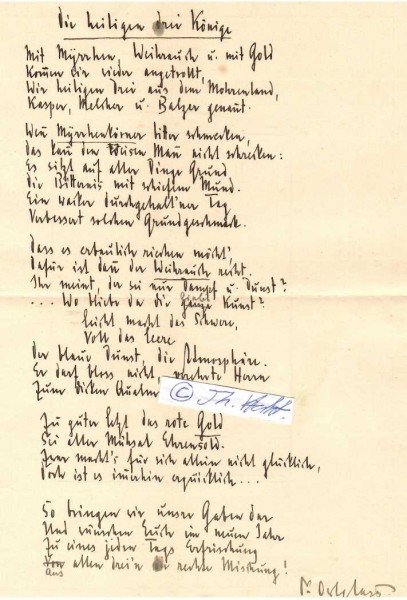 Die heiligen drei Könige
Mit Myrrhen, Weihrauch u. mit Gold
Kommen wir wieder angetrollt,
Wir heiligen Drei aus dem Mohrenland,
Kasper, Melcher u. Balzer genant.
Wenn Myrrhenkörner bitter schmecken,
Das kan den Weisen Man nicht schrecken:
Es sitzt auf aller Dinge Grund
Die Bitternis mit schiefem Mund.
Ein wacker durchgehalt'ner Tag
Verbessert solchen Grundgeschmack.
Dass es erbaulich riechen möcht',
Dafür ist dan der Weihrauch recht.
Ihr meint, der sei nur Dampf u. Dunst?
... Wo bliebe da die ganze Kunst?
Leicht macht das Schwere,
Voll das Leere
Der blaue Dunst, die Atmosphäre.
Er darf bloss nicht, verehrte Herrn
Zum dicken Qualm
© Th. Vogt.
Zu guter letzt das rote Gold
Sei aller Mühsal Ehrensold.
Zwar macht's für sich allein nicht glücklich,
Doch ist es immerhin erquicklich...
So bringen wir unsre Gaben dar
Und wünschen Euch im neuen Jahr
Zu eines jeden Tags Erfrischung
aus allen drein die rechte Mischung!